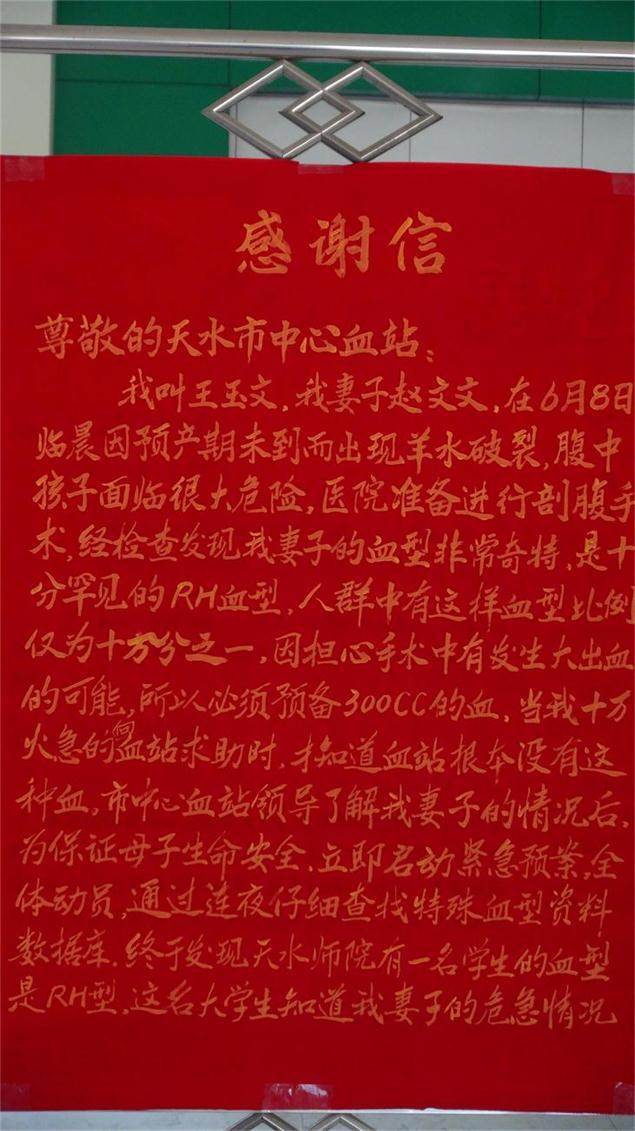 感谢信
尊敬的天水市中心血站：
我叫王玉文，我妻子赵文文，在6月8日
临晨因预产期未到而出现羊水破裂，腹中
孩子面临很大危险，医院准备进行剖腹手
术，经检查发现我妻子的血型非常奇特，是十
分罕见的RH血型，人群中有这样血型比例
仅为十万分之一，因担心手术中有发生大出血
的可能，所以必须预备300CC的血，当我十万
火急的向血站求助时，才知道血站根本没有这
种血，市中心血站领导了解我妻子的情况后，
为保证母子生命安全，立即启动紧急预案，全
体动员，通过连夜仔细查找特殊血型资料
数据库，终于发现天水师院有一名学生的血型
是RH型，这名大学生知道我妻子的危急情况